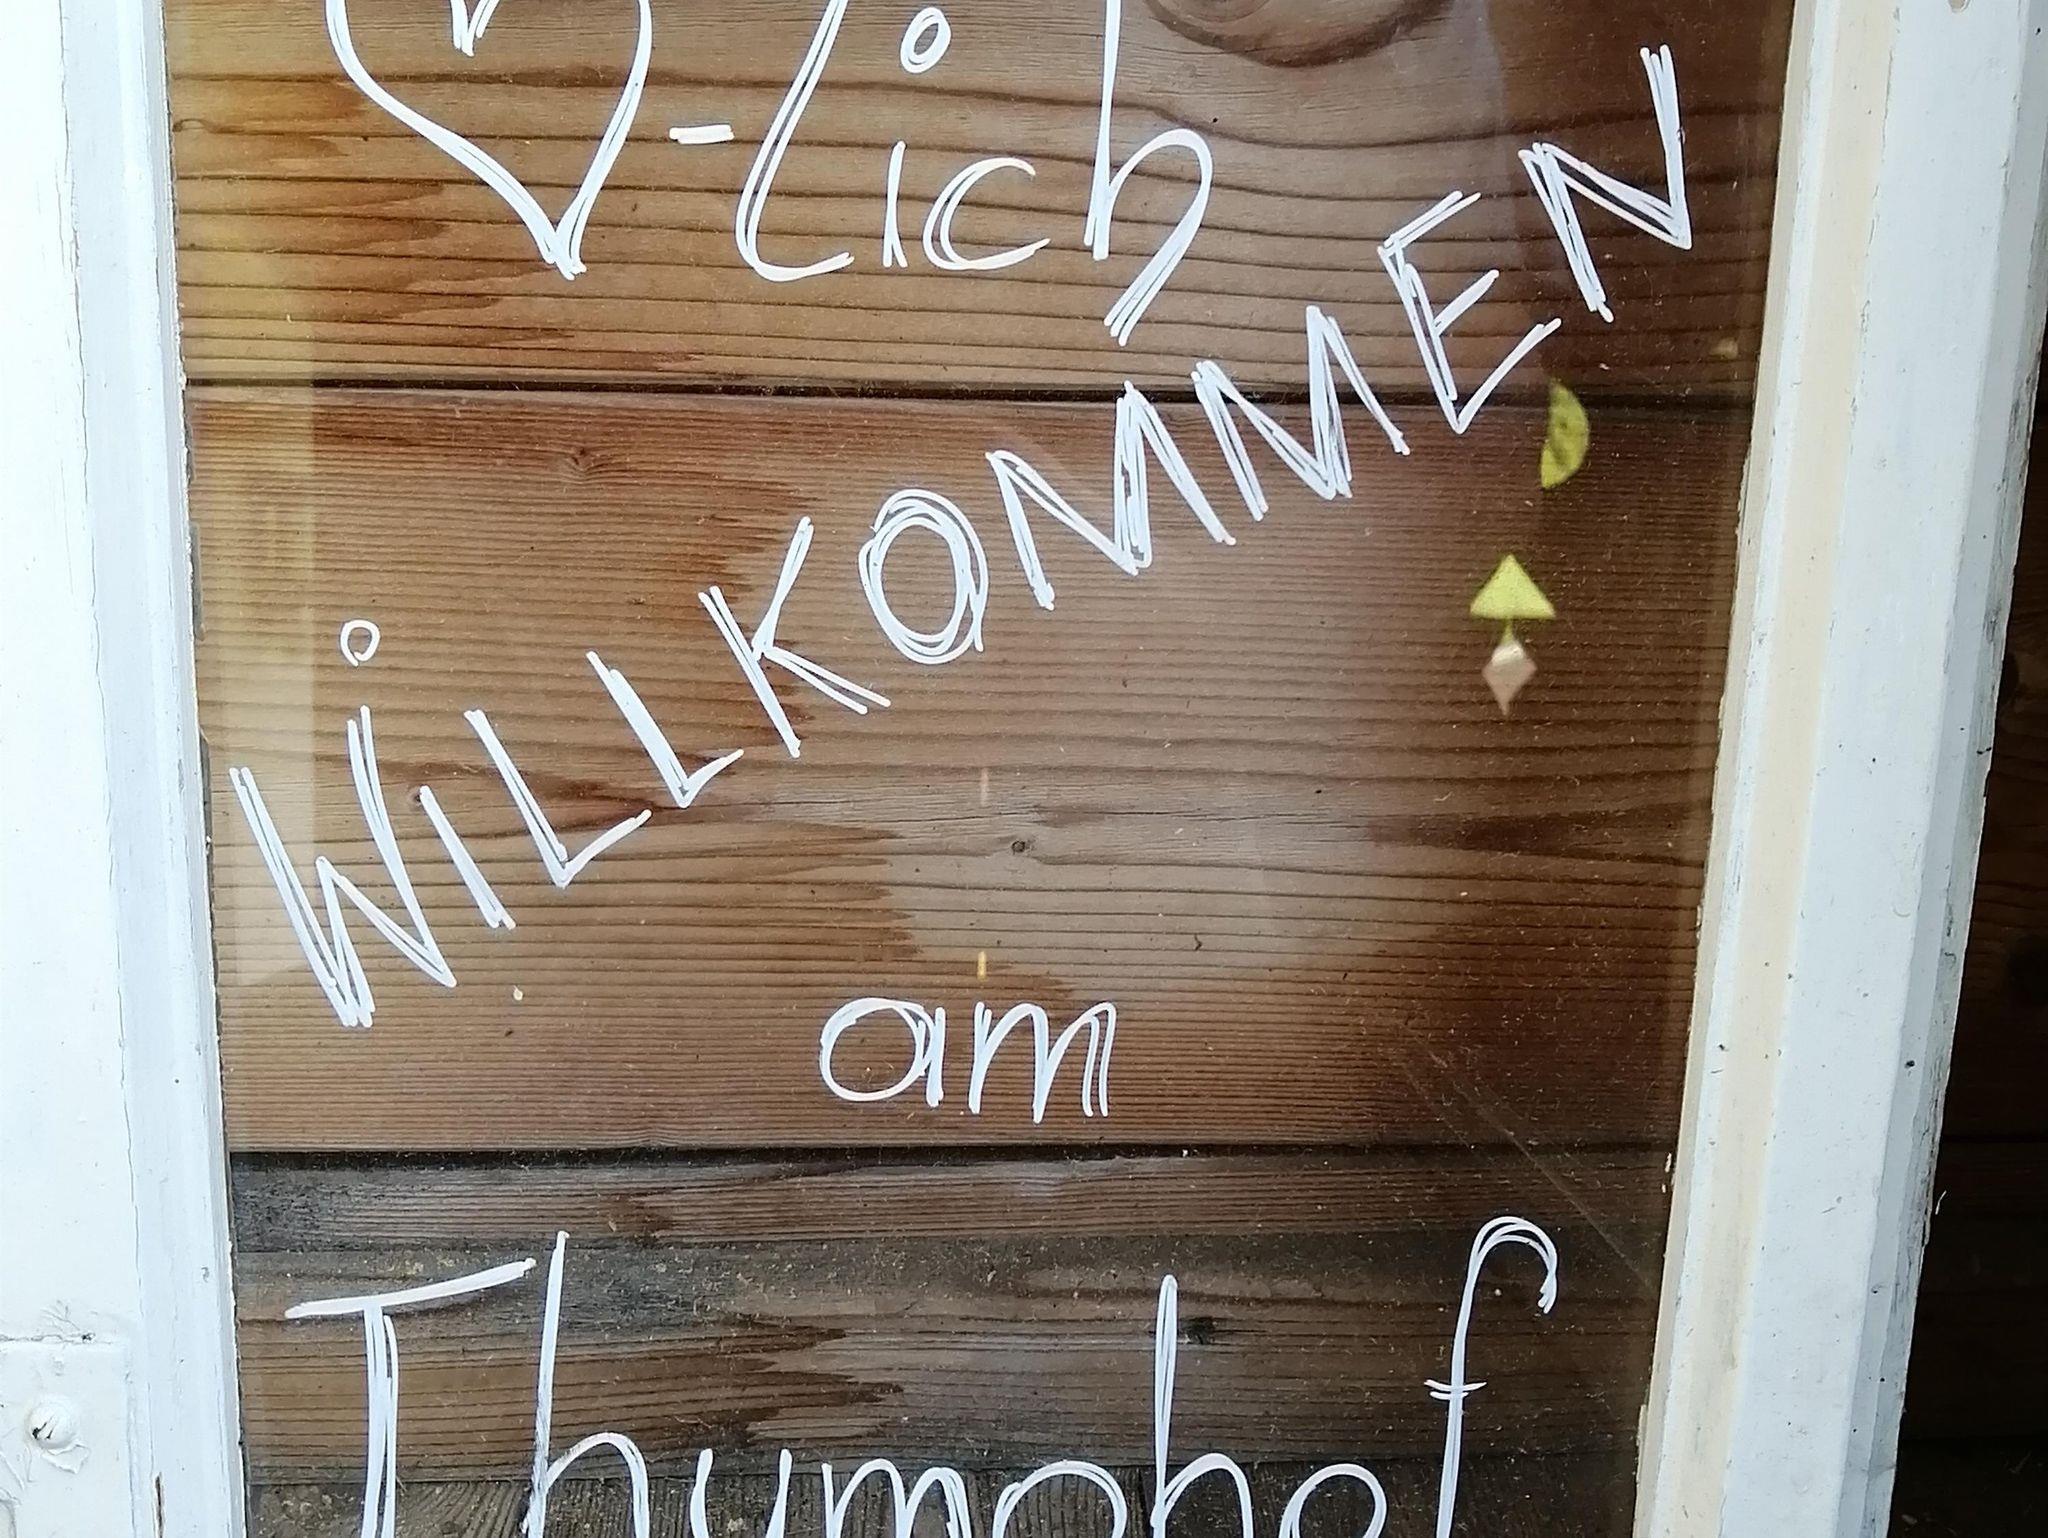 ♡-lich
WiLLKOMMEN
am
Thymohof